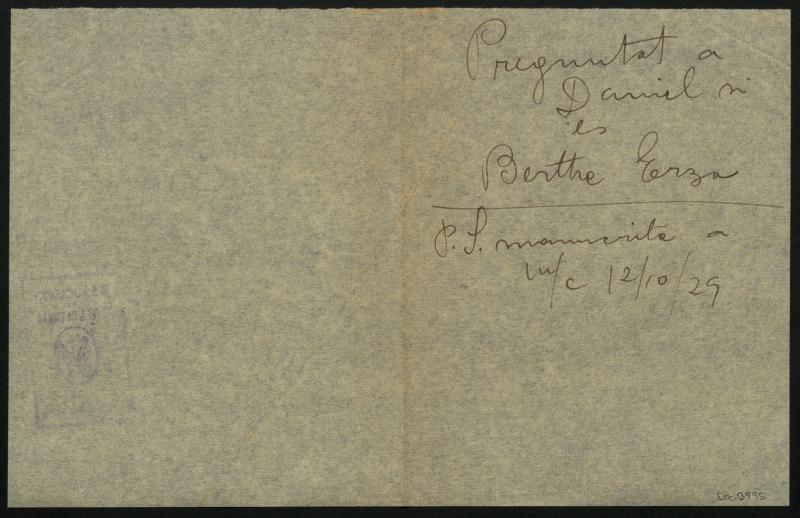 Preguntat a
Daniel si
és
Berthe Erza
P.S. manuscrita a
m/c 12/10/29
Doc.B995